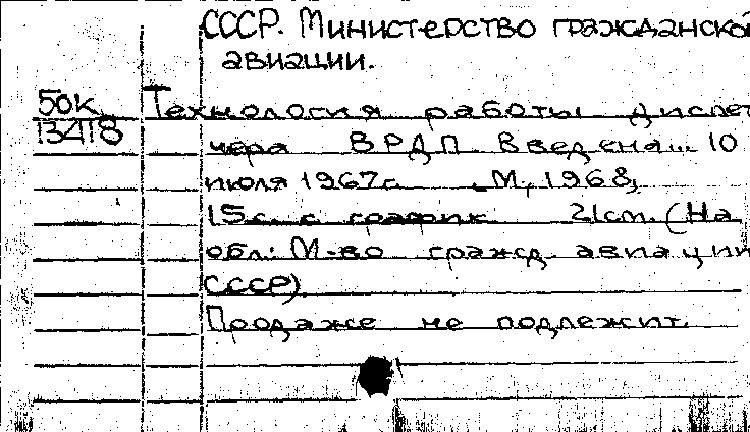 СССР. Министерство гражданской
авиации.
БОК Технология работы диспет
13418 чера ВРДП. Введена... 10
июля 1967г. М, 1968,
15с. с график. 21см. (На
обл: М-во гражд. авиации
СССР).
Продаже не подлежит.